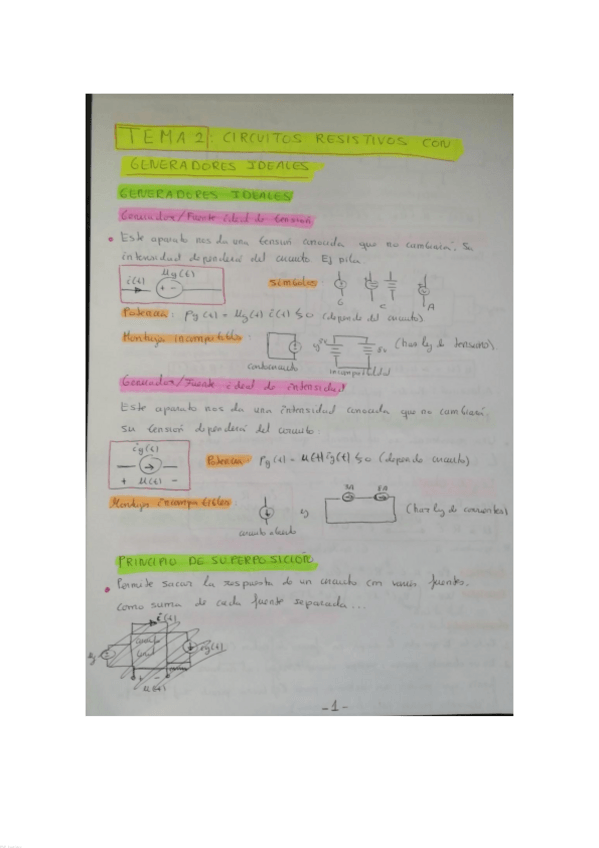 TEMA 2: CIRCUITOS RESISTIVOS CON
GENERADORES IDEALES
GENERADORES IDEALES
Generador/Fuente ideal de tensión
• Este aparato nos da una tensión conocida que no cambiará. Su
intensidad dependerá del circuito. Ej pila.
i(t) ug(t)
+ -
Símbolos
C A
Potencia: pg(t) = ug(t) i(t) ≶ 0 (depende del circuito)
Montajes incompatibles: (haz ley de tensiones).
cortocircuito incompatibilidad
Generador/Fuente ideal de intensidad
Este aparato nos da una intensidad conocida que no cambiará.
su tensión dependerá del circuito.
ig(t)
+ u(t) -
Potencia: pg(t) = u(t) ig(t) ≶ 0 (depende circuito)
Montajes incompatibles:
circuito abierto
y
(haz ley de corrientes)
PRINCIPIO DE SUPERPOSICIÓN
• Permite sacar la respuesta de un circuito con varias fuentes.
como suma de cada fuente separada...
i(t)
ig(t)
+ -
u(t)
-1-